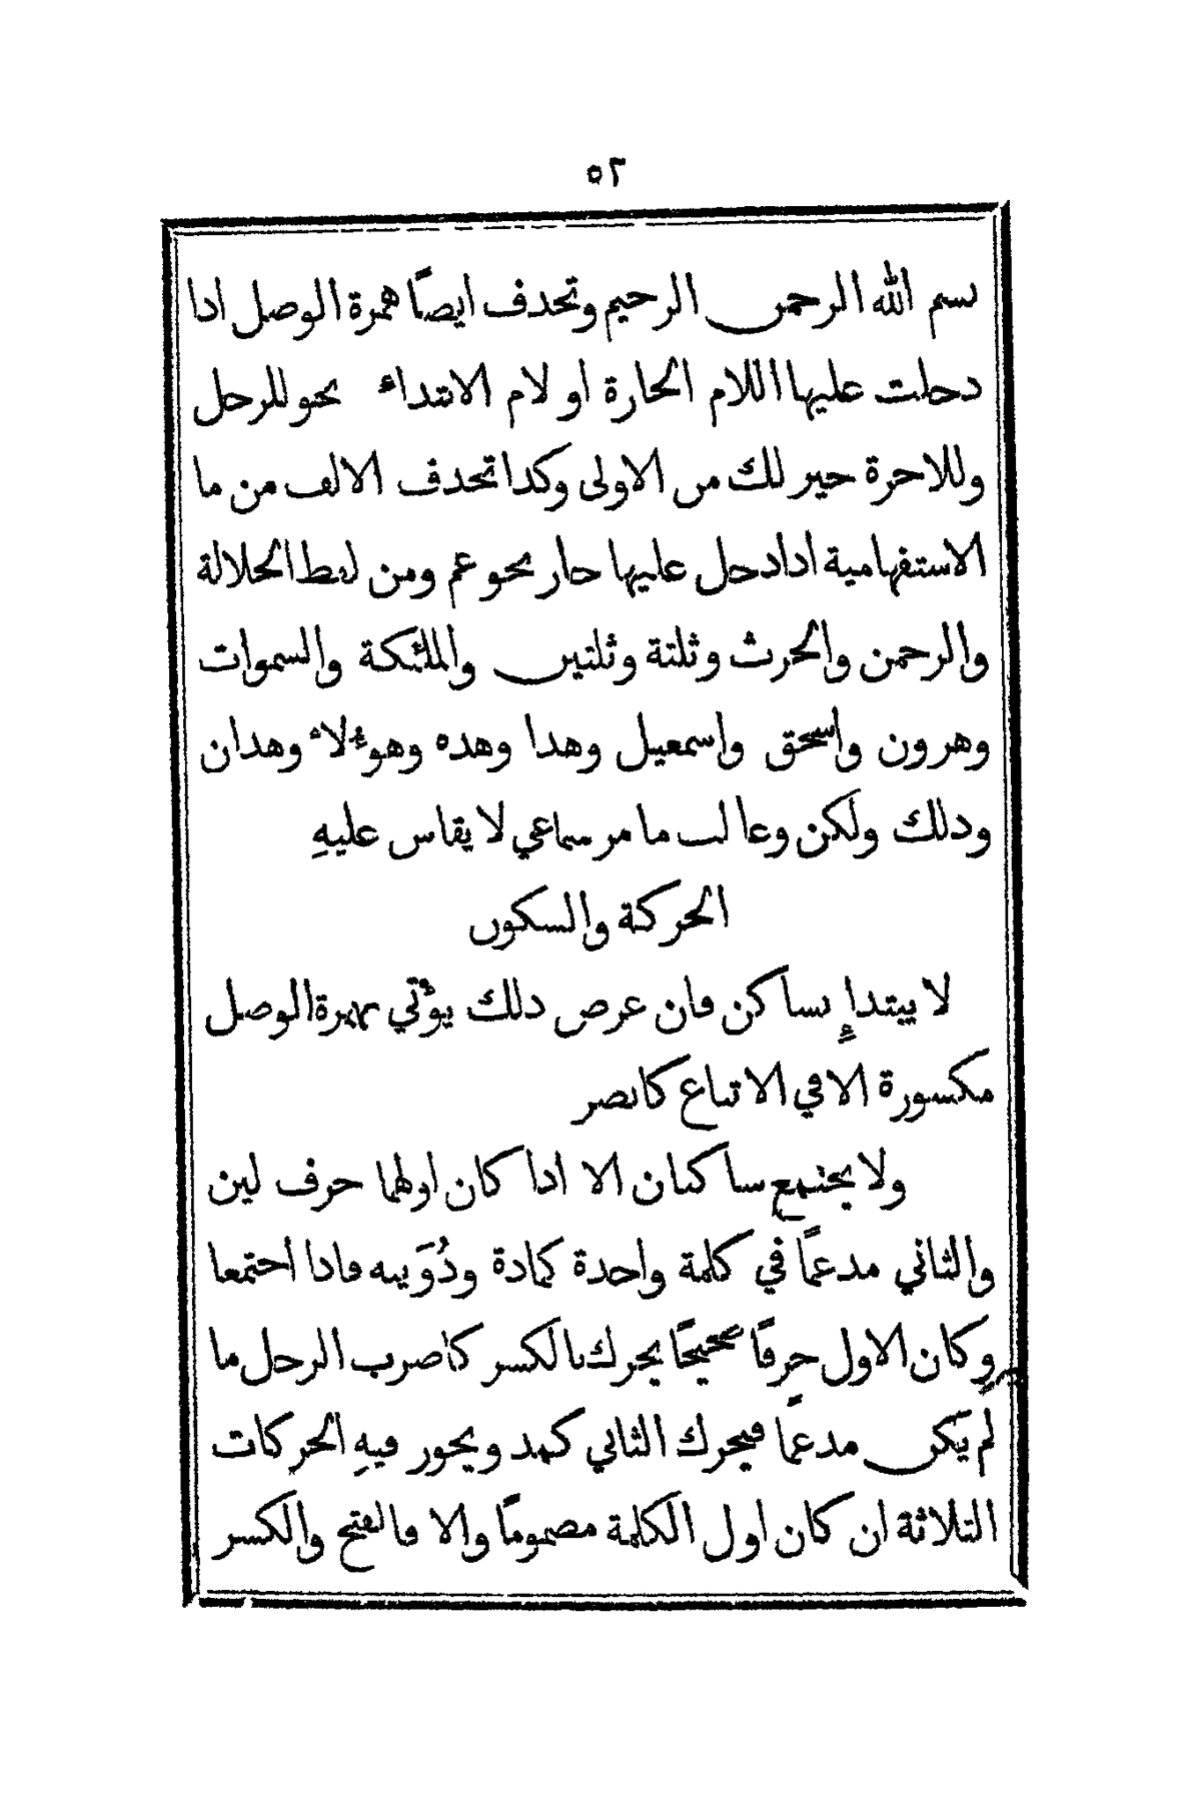 ٥٢
بسم الله الرحمن الرحيم وتحذف ايضًا همزة الوصل اذا
دخلت عليها اللام الجارة او لام الابتداء نحو للرجل
وللاخرة خير لك من الاولى وكذا تحذف الالف من ما
الاستفهامية اذا دخل عليها جار نحو عم ومن لفظ الجلالة
والرحمن والحرث وثلثة وثلثين والملئكة والسموات
وهرون واسحق واسمعيل وهذا وهذه وهؤلاء وهذان
وذلك ولكن وغالب ما مر سماعي لا يقاس عليهِ
الحركة والسكون
لا يبتدإِ بساكن فان عرض ذلك يؤتي بهمزة الوصل
مكسورة الا في الاتباع كانصر
ولا يجتمع ساكنان الا اذا كان اولهما حرف لين
والثاني مدغمًا في كلمة واحدة كمادة ودُوَيبه فاذا اجتمعا
وكان الاول حرفًا صحيحًا يحرك بالكسر كاضرب الرجل ما
لم يَكن مدغمًا فيحرك الثاني كمد ويجوز فيهِ الحركات
الثلاثة ان كان اول الكلمة مضمومًا والا فالفتح والكسر